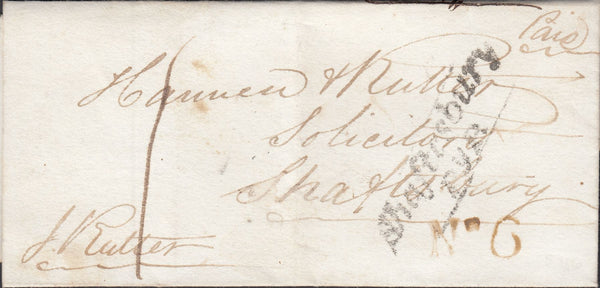 Paid
Hannen & Rutter
Solicitors
Shaftesbury
J. Rutter
1
Shaftesbury
No. 6